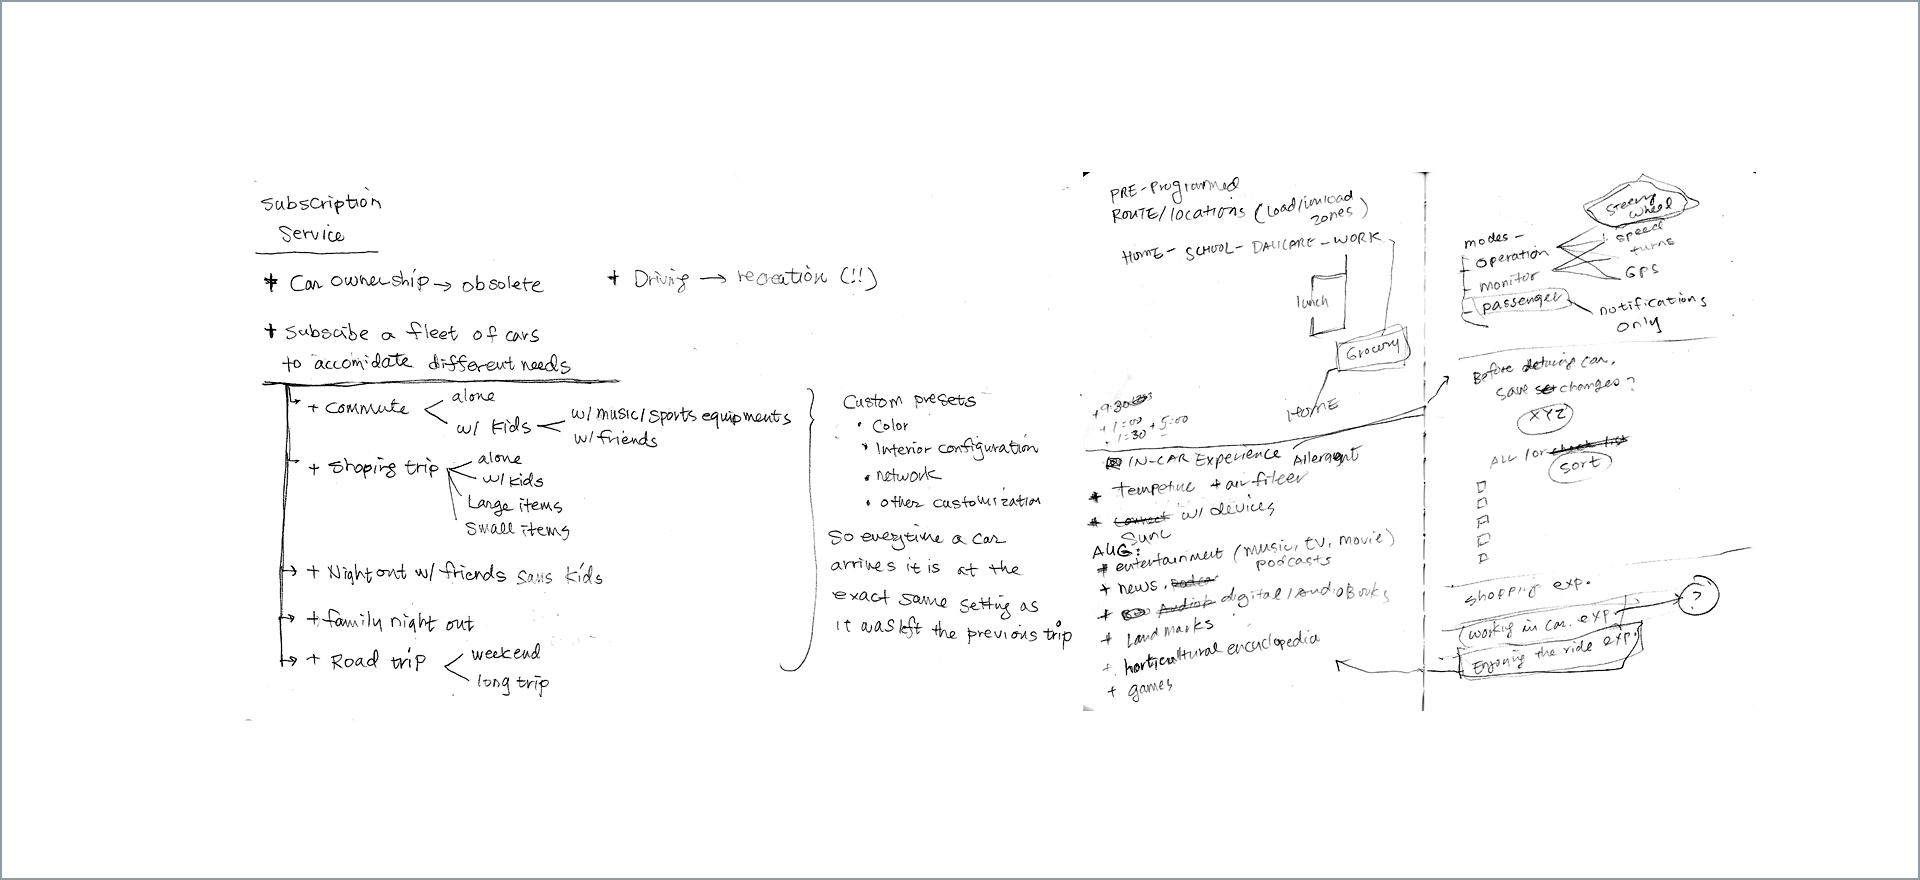 Subscription
Service
+ Car ownership → obsolete
+ Driving → recreation (!!)
+ Subscibe a fleet of cars
to accomidate different needs
+ Commute
alone
w/ kids
w/ music/sports equipments
w/ friends
+ Shoping trip
alone
w/ kids
Large items
Small items
+ Night out w/ friends sans kids
+ family night out
+ Road trip
weekend
long trip
Custom presets
• Color
• Interior configuration
• network
• other customization
So everytime a car
arrives it is at the
exact same setting as
it was left the previous trip
PRE-Programmed
ROUTE/locations (Load/unload
zones)
HOME - SCHOOL - DAUCARE - WORK
lunch
Grocery
HOME
+ 9:30
+ 1:00
- 1:30 + 5:00
IN-CAR Experience
+ Tempeture + air filter
+ w/ devices
Sync
AUG:
+ entertainment (music, TV, movie)
podcasts
+ news,
+ digital / AudioBooks
+ Land marks
+ horticultural encyclopedia
+ games
Steering
wheel
modes -
- operation
- monitor
- passenger
speed
turns
GPS
notifications
only
Before car,
save changes?
XYZ
ALL /or
sort
shopping exp.
working in car. exp.
?
Enjoying the ride exp.